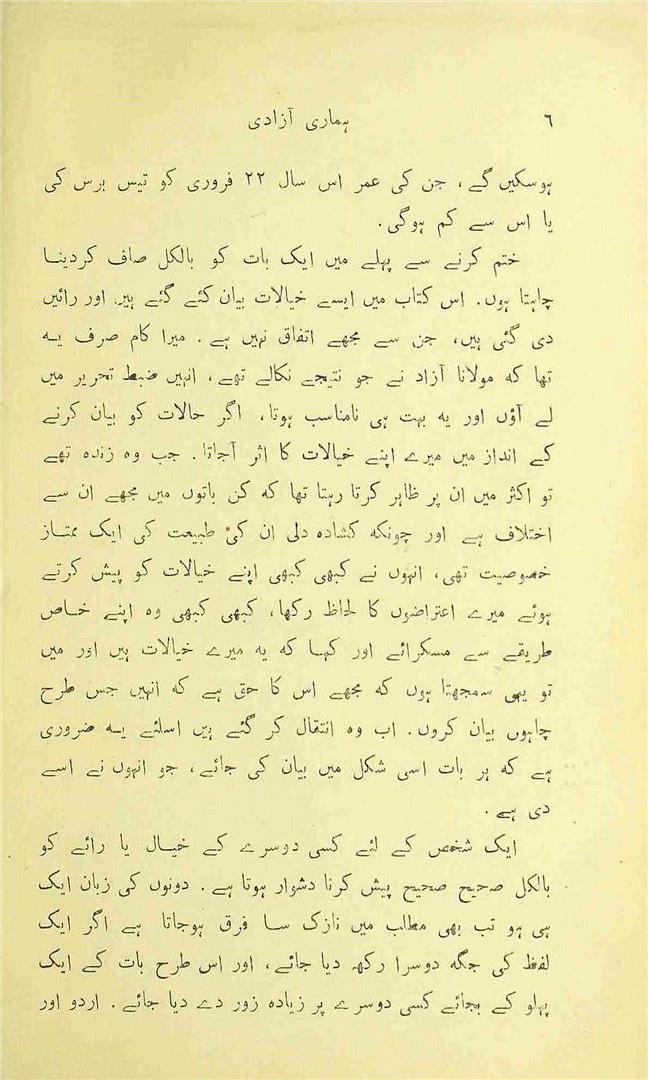 ٦ ہماری آزادی
ہوسکیں گے، جن کی عمر اس سال ۲۲ فروری کو تیس برس کی
یا اس سے کم ہوگی.
ختم کرنے سے پہلے میں ایک بات کو بالکل صاف کردینا
چاہتا ہوں. اس کتاب میں ایسے خیالات بیان کئے گئے ہیں اور رائیں
دی گئی ہیں، جن سے مجھے اتفاق نہیں ہے. میرا کام صرف یہ
تھا کہ مولانا آزاد نے جو نتیجے نکالے تھے، انہیں ضبط تحریر میں
لے آؤں اور یہ بہت ہی نامناسب ہوتا، اگر حالات کو بیان کرنے
کے انداز میں میرے اپنے خیالات کا اثر آجاتا. جب وہ زندہ تھے
تو اکثر میں ان پر ظاہر کرتا رہتا تھا کہ کن باتوں میں مجھے ان سے
اختلاف ہے اور چونکہ کشادہ دلی ان کی طبیعت کی ایک ممتاز
خصوصیت تھی، انہوں نے کبھی کبھی اپنے خیالات کو پیش کرتے
ہوئے میرے اعتراضوں کا لحاظ رکھا، کبھی کبھی وہ اپنے خاص
طریقے سے مسکرائے اور کہا کہ یہ میرے خیالات ہیں اور میں
تو یہی سمجھتا ہوں کہ مجھے اس کا حق ہے کہ انہیں جس طرح
چاہوں بیان کروں. اب وہ انتقال کر گئے ہیں اسلئے یہ ضروری
ہے کہ ہر بات اسی شکل میں بیان کی جائے، جو انہوں نے اسے
دی ہے.
ایک شخص کے لئے کسی دوسرے کے خیال یا رائے کو
بالکل صحیح صحیح پیش کرنا دشوار ہوتا ہے. دونوں کی زبان ایک
ہی ہو تب بھی مطلب میں نازک سا فرق ہوجاتا ہے اگر ایک
لفظ کی جگہ دوسرا رکھ دیا جائے، اور اس طرح بات کے ایک
پہلو کے بجائے کسی دوسرے پر زیادہ زور دے دیا جائے. اردو اور